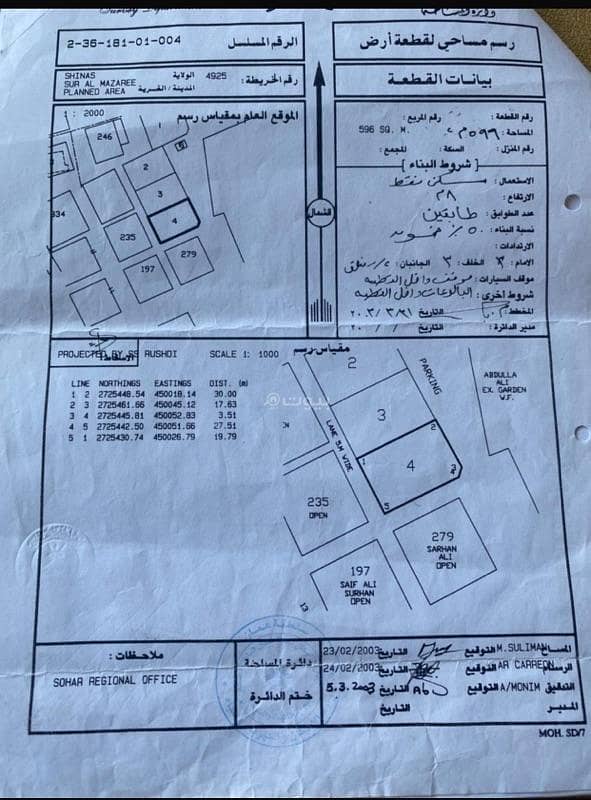 وزارة الاسكان
رسم مساحي لقطعة أرض
الرقم المسلسل 2-36-181-01-004
بيانات القطعة
رقم الخريطة : 4925 الولاية SHINAS
المدينة / القرية SUR AL MAZAREE
PLANNED AREA
رقم القطعة : رقم المربع :
المساحة : ٥٩٩ م٢ 596 SQ. M.
رقم المنزل : السكة : المجمع :
شروط البناء
الاستعمال : سكن فقط
الارتفاع : ٨م
عدد الطوابق : طابقين
نسبة البناء : ٥٠٪
الارتدادات :
الامام : ٣ الخلف : ٣ الجانبان :
موقف السيارات :
شروط اخرى : البالوعات داخل القطعة
المخطط : التاريخ ٢٠٠٣/٣/
مدير الدائرة : التاريخ / / ٢٠٠
الموقع العام بمقياس رسم 1 : 2000
246
1
2
3
4
334
235
197
279
الشمال
الاسقاط :
PROJECTED BY SS RUSHDI SCALE 1: 1000 مقياس رسم
LINE NORTHINGS EASTINGS DIST. (m)
1 2 2725448.54 450018.14 30.00
2 3 2725461.66 450045.12 17.63
3 4 2725445.81 450052.83 3.51
4 5 2725442.50 450051.66 27.51
5 1 2725430.74 450026.79 19.79
بيوت
2
PARKING
ABDULLA
ALI
EX. GARDEN
W.F.
3
LANE 5M WIDE
2
1
4
3
4
5
235
OPEN
279
SARHAN
ALI
OPEN
197
SAIF ALI
SURHAN
OPEN
13
ملاحظات :
SOHAR REGIONAL OFFICE
دائرة المساحة
ختم الدائرة
المساح M.SULIMAN التوقيع التاريخ 23/02/2003
الرسام AR CARREON التوقيع التاريخ 24/02/2003
التدقيق A/MONIM التوقيع التاريخ 5.3.2003
المدير التاريخ
MOH. SD/7